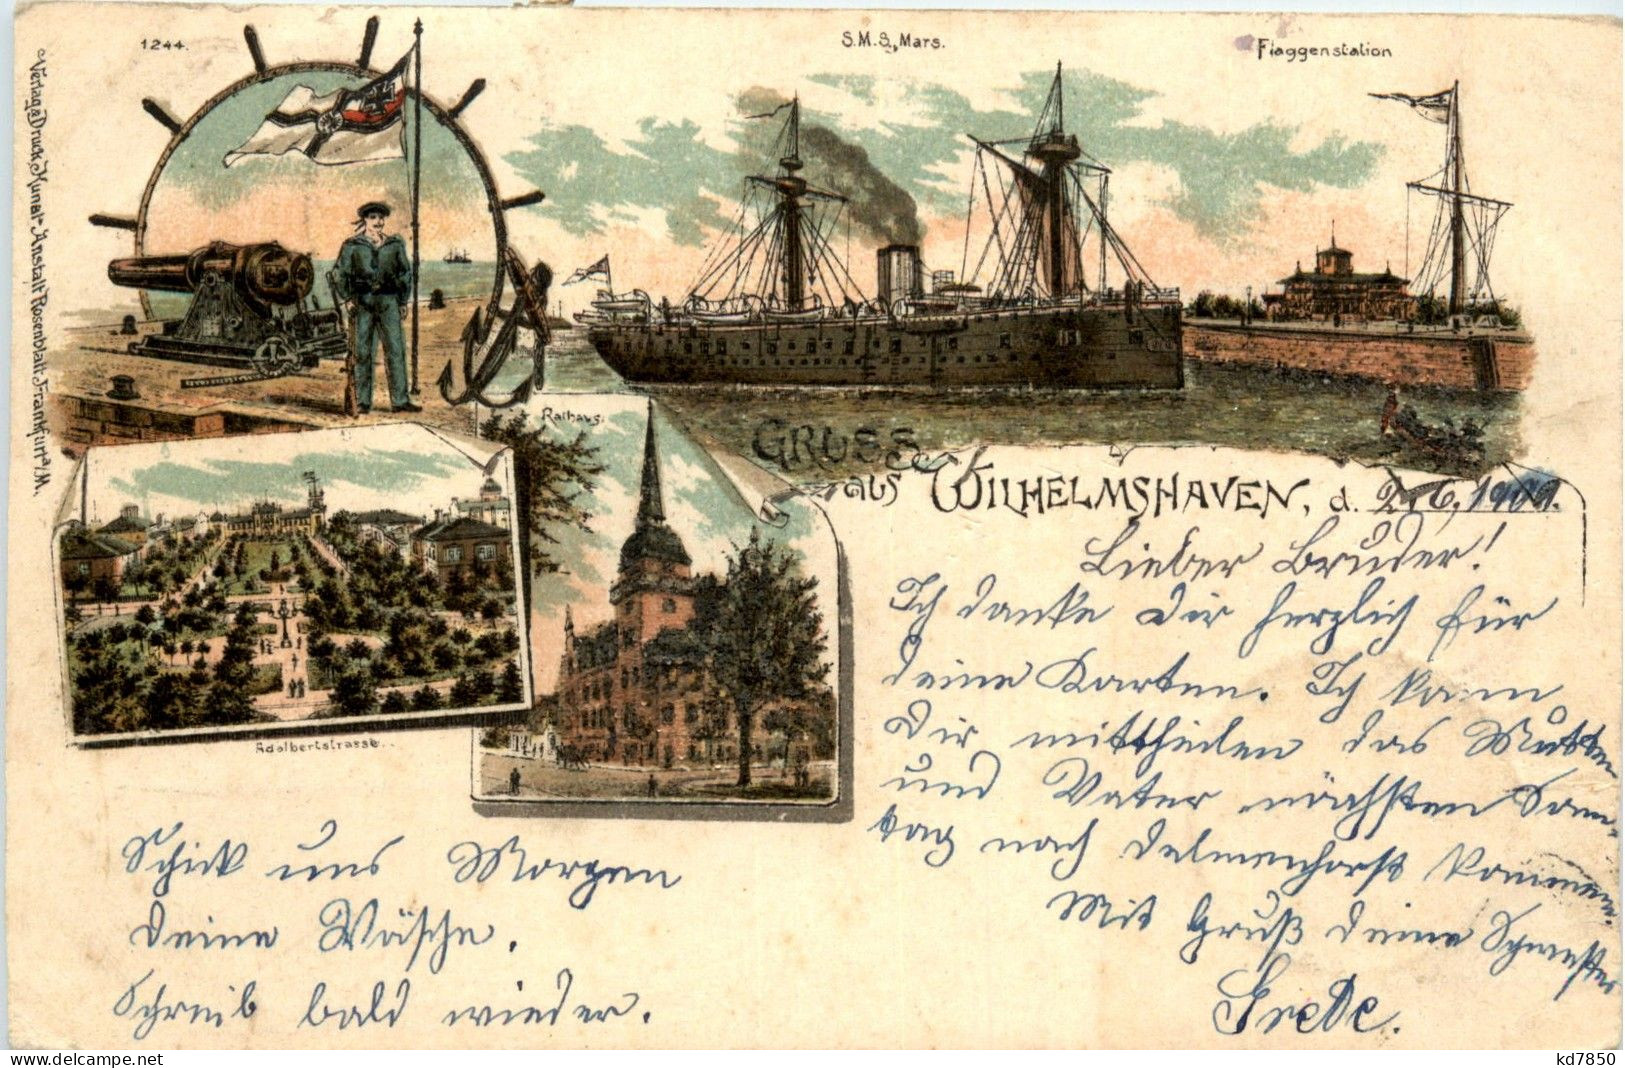 1244.
S.M.S. Mars.
Flaggenstation
Verlag & Druck, Kunst-Anstalt Rosenblatt Frankfurt a/M.
Rathaus.
Adalbertstrasse.
GRUSS
aus WILHELMSHAVEN, d. 2. 6. 1901.
Lieber Bruder!
Ich danke Dir herzlich für
deine Karten. Ich kann
Dir mittheilen das Mutter
und Vater nächsten Sonn-
tag nach Delmenhorst kommen.
Mit Gruß deine Schwester
Grete.
Schick uns Morgen
deine Wäsche.
Schreib bald wieder.
kd7850